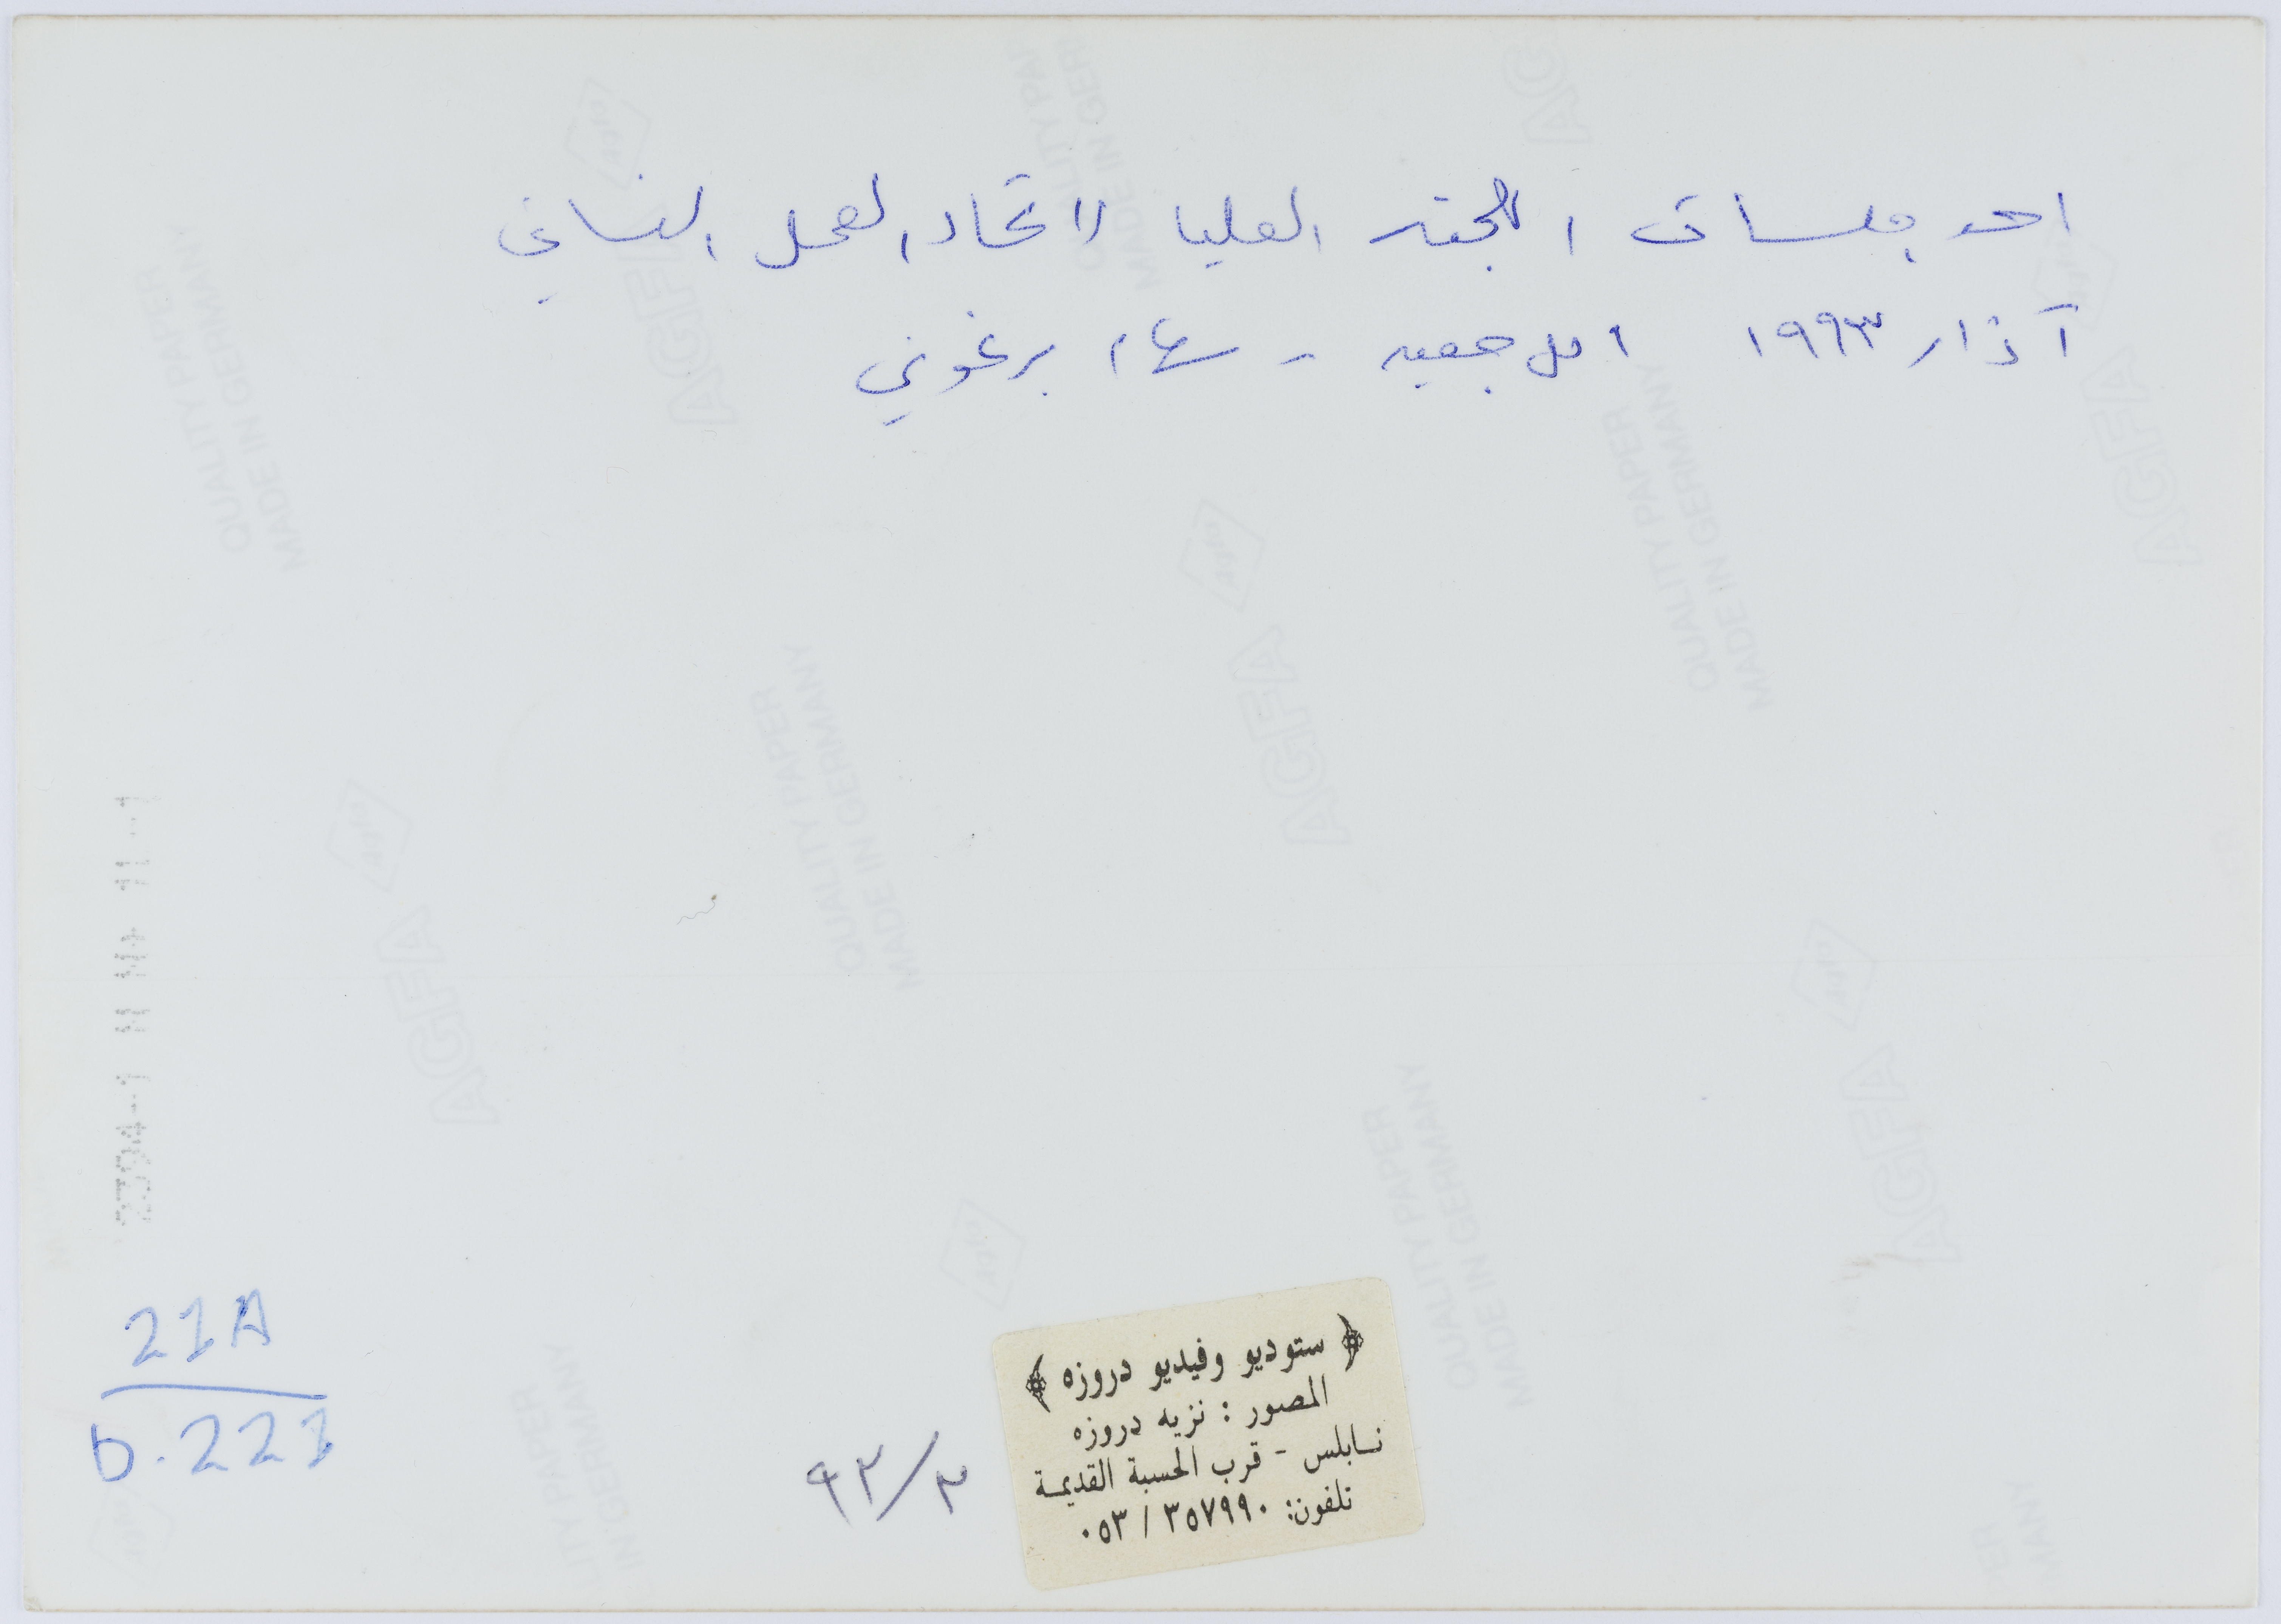 احد جلسات اللجنه العليا لاتحاد العمل النسائي
آذار ١٩٩٣ امل جمعيه - سهام برغوثي
21A
D.221
٩٣/٣
﴿ ستوديو وفيديو دروزه ﴾
المصور : نزيه دروزه
نابلس - قرب الحسبة القديمة
تلفون: ٣٥٧٩٩٠ / ٠٥٣
AGFA
QUALITY PAPER
MADE IN GERMANY